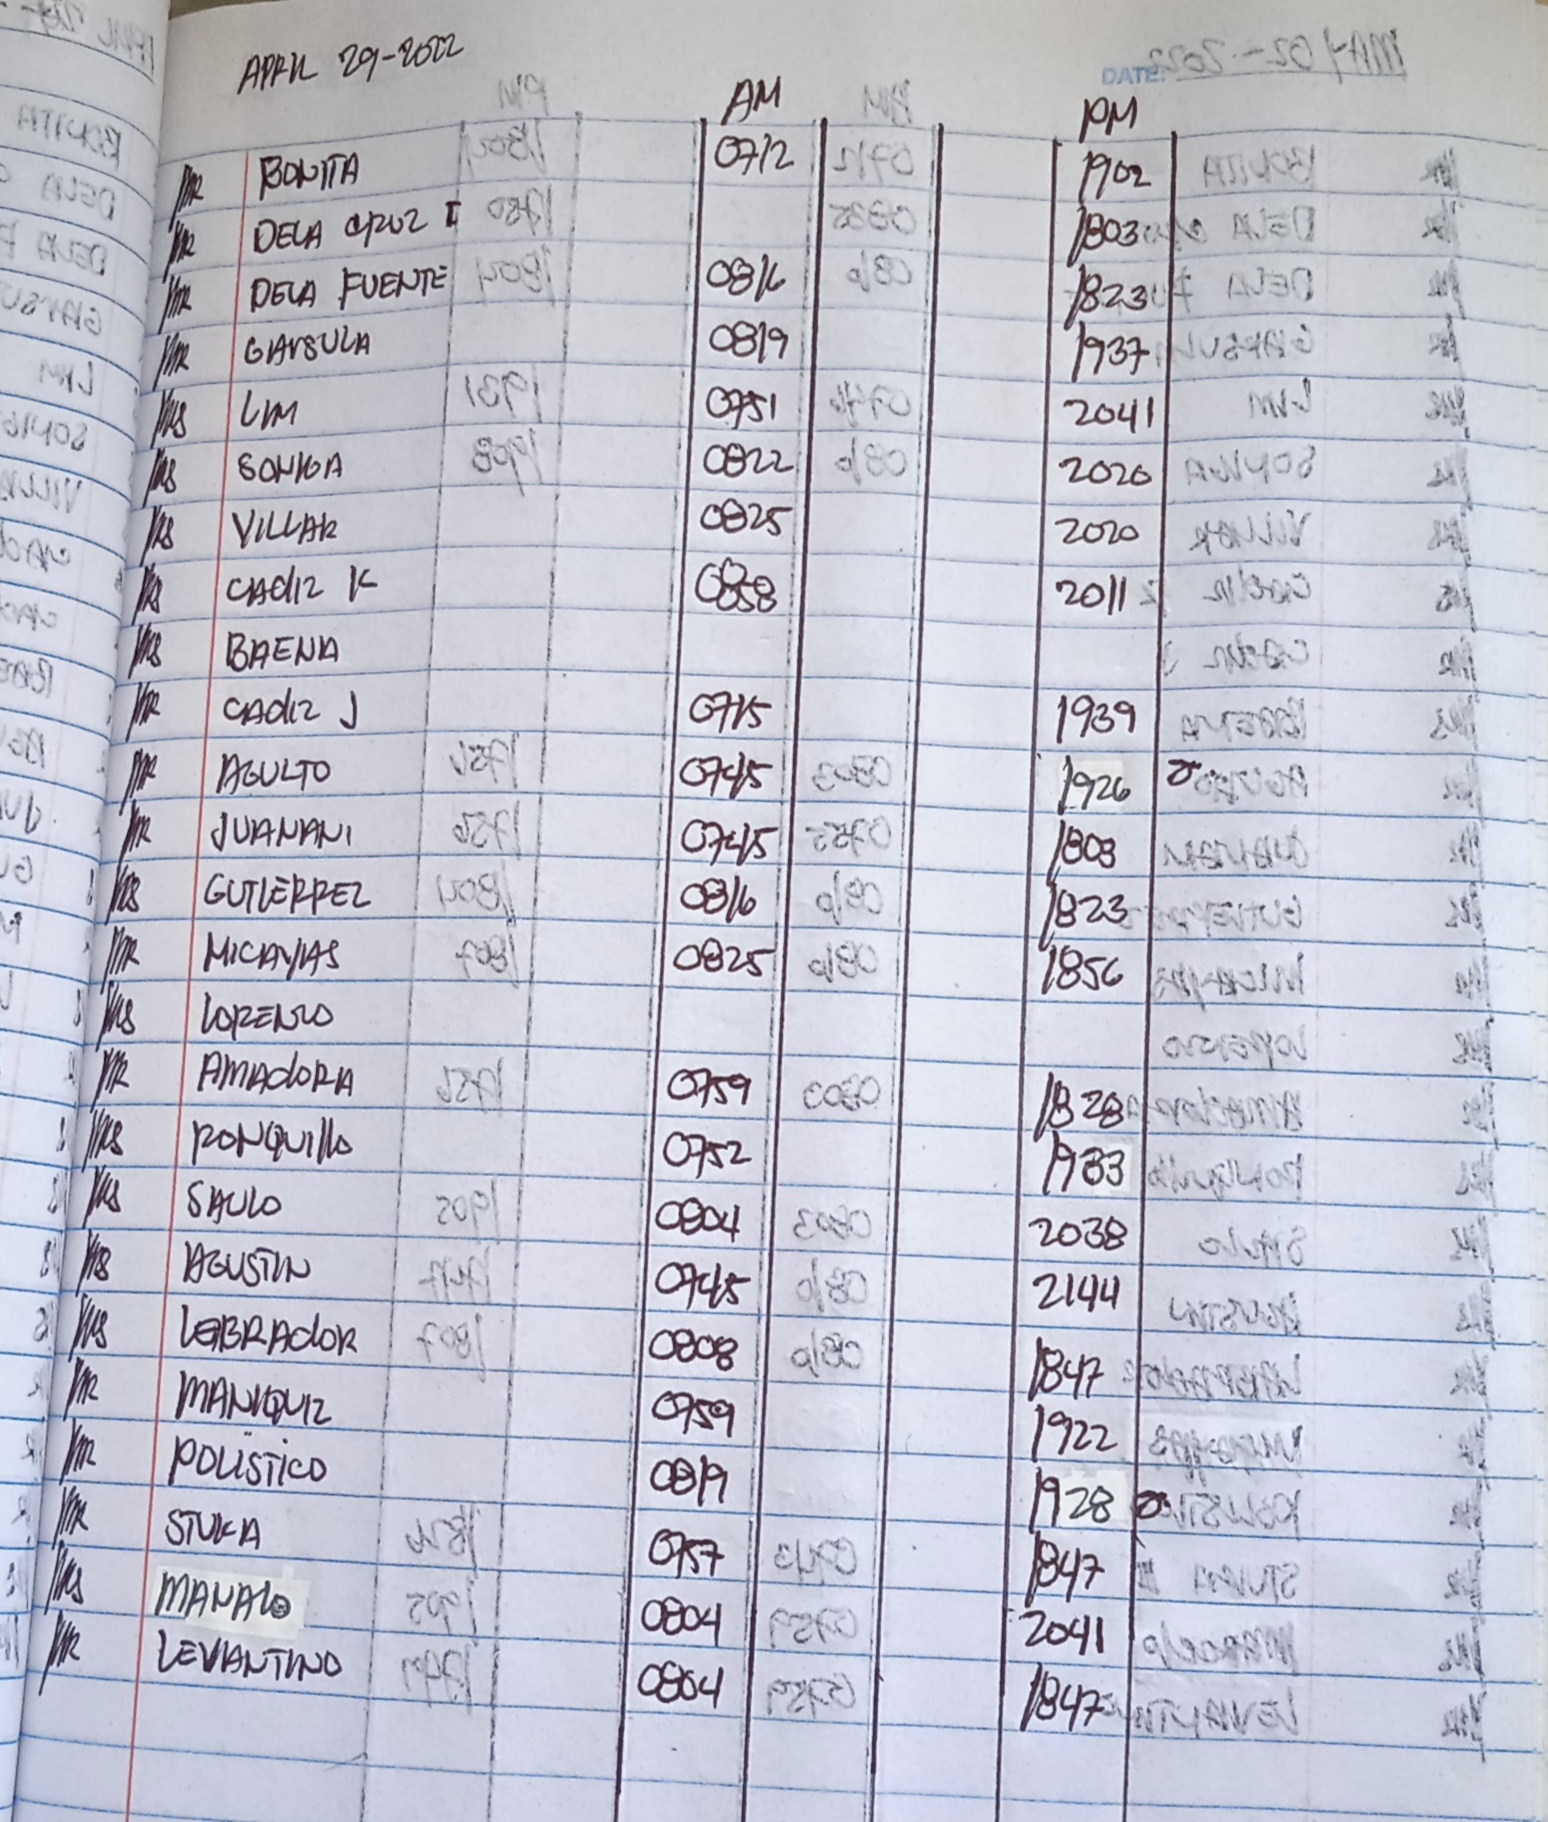 APRIL 29-2022
DATE:
AM PM
MR BONITA 0712 1902
MR DELA CRUZ I 1803
MR DELA FUENTE 0816 1823
MR GAYSULA 0819 1937
MRS LIM 0751 2041
MRS SONIGA 0822 2020
MRS VILLAR 0825 2020
MRS CADIZ K 0858 2011
MRS BAENA
MR CADIZ J 0715 1939
MR AGULTO 0745 1926
MR JUANANI 0745 1803
MRS GUTIERREZ 0816 1823
MR MICAYAS 0825 1856
MRS LORENZO
MR AMADORA 0759 1828
MRS RONQUILLO 0752 1933
MRS SAULO 0804 2038
MS AGUSTIN 0745 2144
MRS LABRADOR 0808 1847
MR MANIQUIZ 0759 1922
MR POLISTICO 0819 1928
MR STUKA 0757 1847
MRS MANALO 0804 2041
MR LEVIANTINO 0804 1847